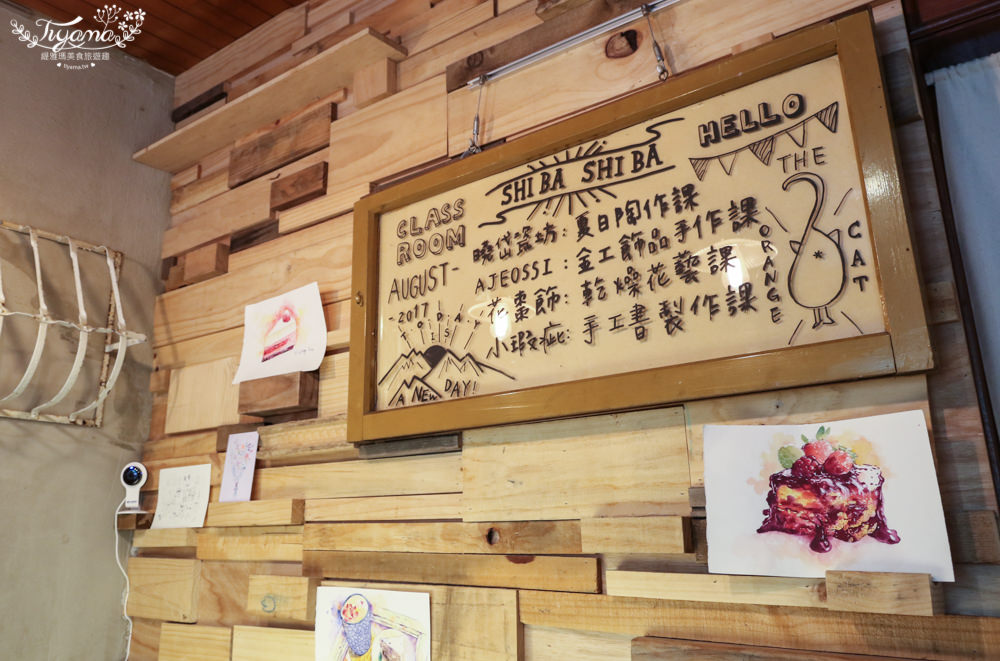 Tiyama
緹雅瑪美食旅遊趣
tiyama.tw
SHIBA SHIBA
HELLO
THE
ORANGE
CAT
CLASS
ROOM
AUGUST-
-2017
曉岱瓷坊: 夏日陶作課
AJEOSSI: 金工飾品手作課
花棗飾: 乾燥花藝課
小瑕疵: 手工書製作課
TODAY
IS
A NEW DAY!